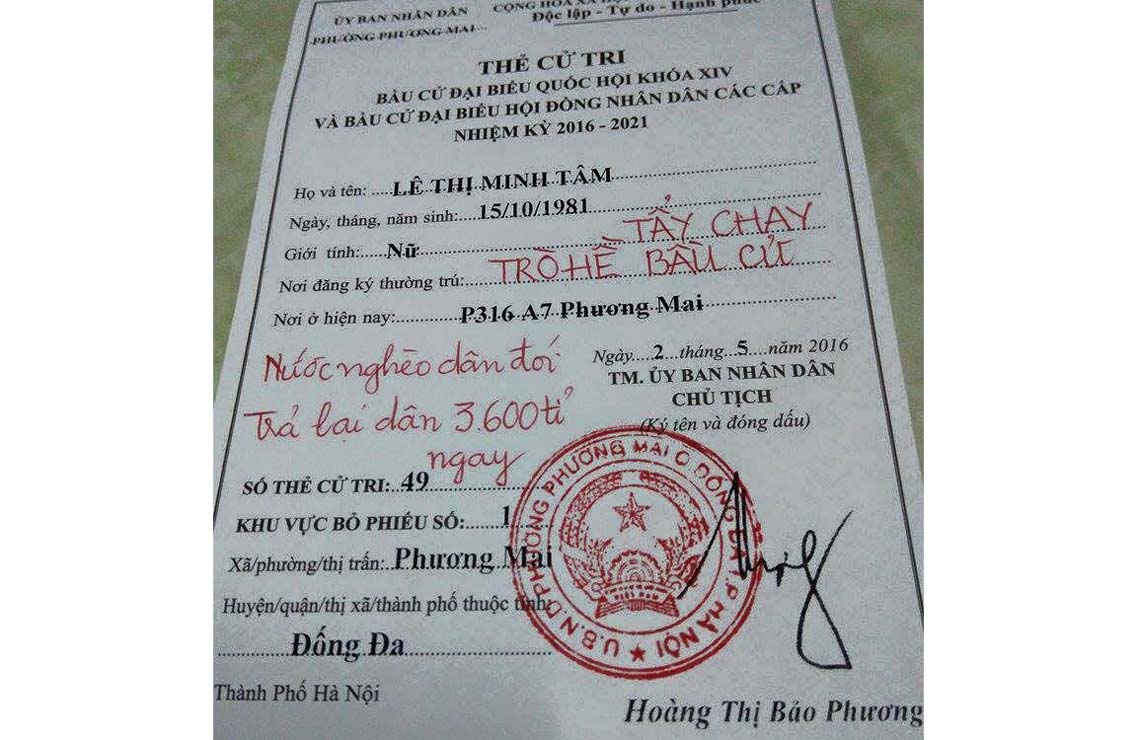 ỦY BAN NHÂN DÂN
PHƯỜNG PHƯƠNG MAI...
CỘNG HÒA XÃ HỘI
Độc lập - Tự do - Hạnh phúc
THẺ CỬ TRI
BẦU CỬ ĐẠI BIỂU QUỐC HỘI KHÓA XIV
VÀ BẦU CỬ ĐẠI BIỂU HỘI ĐỒNG NHÂN DÂN CÁC CẤP
NHIỆM KỲ 2016 - 2021
Họ và tên: LÊ THỊ MINH TÂM
Ngày, tháng, năm sinh: 15/10/1981
TẨY CHAY
Giới tính: Nữ
TRÒ HỀ BẦU CỬ
Nơi đăng ký thường trú:
Nơi ở hiện nay: P316 A7 Phương Mai
Nước nghèo dân đói
Trả lại dân 3.600 tỉ
ngay
Ngày 2 tháng 5 năm 2016
TM. ỦY BAN NHÂN DÂN
CHỦ TỊCH
(Ký tên và đóng dấu)
SỐ THẺ CỬ TRI: 49
KHU VỰC BỎ PHIẾU SỐ: 1
Xã/phường/thị trấn: Phương Mai
Huyện/quận/thị xã/thành phố thuộc tỉnh:
Đống Đa
Thành Phố Hà Nội
U.B.N.D PHƯỜNG PHƯƠNG MAI Q. ĐỐNG ĐA T.P HÀ NỘI
VIỆT NAM
Hoàng Thị Bảo Phương